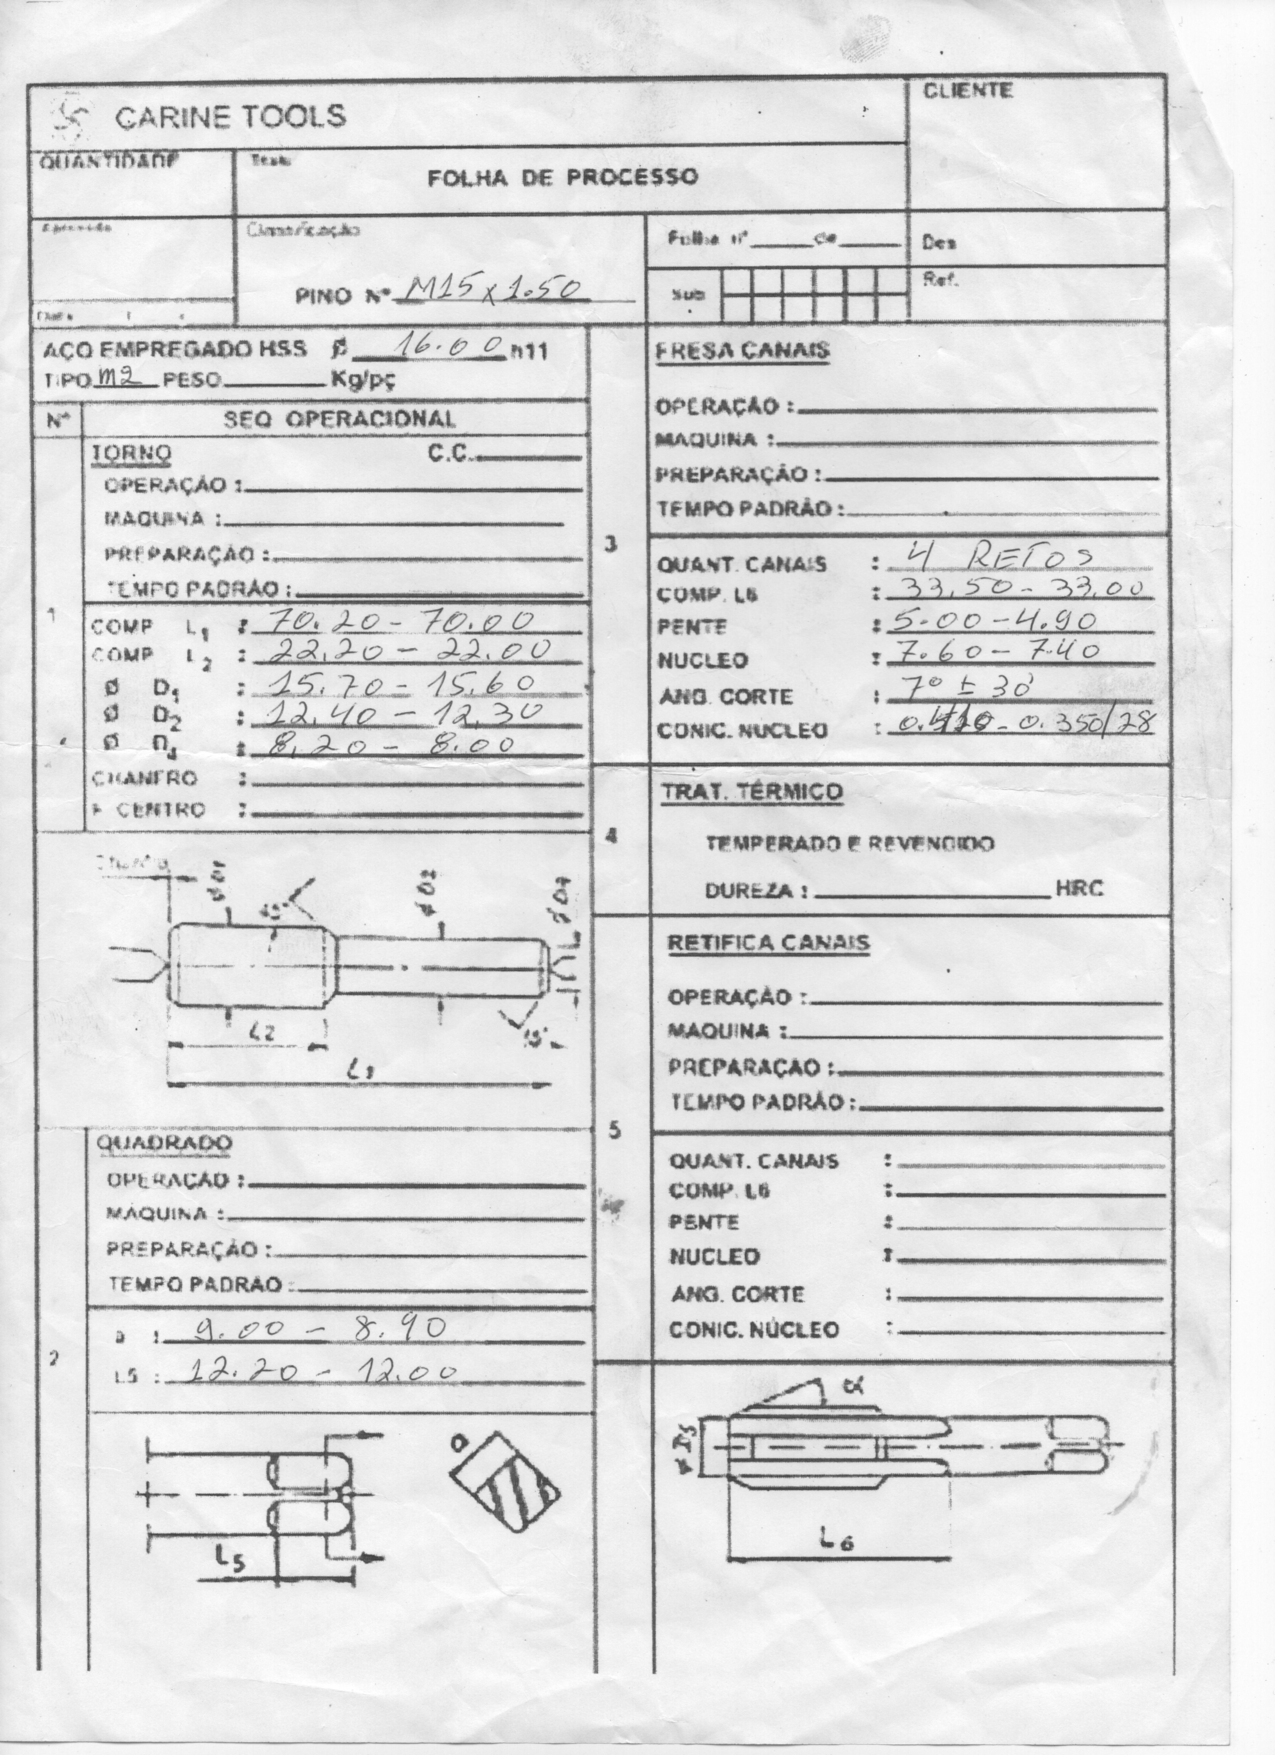 CARINE TOOLS
CLIENTE
QUANTIDADE
FOLHA DE PROCESSO
Classificação
Folha nº ______ de ______
Des
PINO Nº M15 x 1.50
Sub
Ref.
AÇO EMPREGADO HSS Ø 16.00 h11
TIPO M2 PESO ______ Kg/pç
Nº SEQ OPERACIONAL
1
TORNO C.C.
OPERAÇÃO :
MAQUINA :
PREPARAÇÃO :
TEMPO PADRÃO :
COMP L1 : 70.20 - 70.00
COMP L2 : 22.20 - 22.00
Ø D1 : 15.70 - 15.60
Ø D2 : 12.40 - 12.30
Ø D4 : 8.20 - 8.00
CHANFRO :
F CENTRO :
Ø D1
45°
Ø D2
L2
L1
2
QUADRADO
OPERAÇÃO :
MÁQUINA :
PREPARAÇÃO :
TEMPO PADRÃO :
a : 9.00 - 8.90
L5 : 12.20 - 12.00
a
L5
3
FRESA CANAIS
OPERAÇÃO :
MAQUINA :
PREPARAÇÃO :
TEMPO PADRÃO :
QUANT. CANAIS : 4 RETOS
COMP. L6 : 33,50 - 33.00
PENTE : 5.00 - 4.90
NUCLEO : 7.60 - 7.40
ANG. CORTE : 7° ± 30'
CONIC. NUCLEO : - 0.350/28
4
TRAT. TÉRMICO
TEMPERADO E REVENDIDO
DUREZA : ______ HRC
5
RETIFICA CANAIS
OPERAÇÃO :
MAQUINA :
PREPARAÇÃO :
TEMPO PADRÃO :
QUANT. CANAIS :
COMP. L6 :
PENTE :
NUCLEO :
ANG. CORTE :
CONIC. NÚCLEO :
α
L6